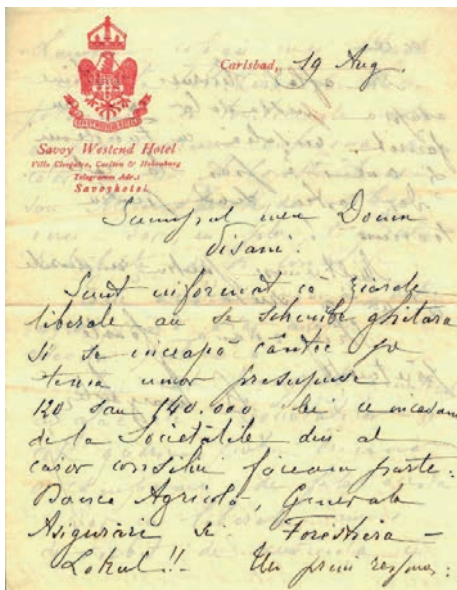 Carlsbad, 19 Aug.
Savoy Westend Hotel
Villa Cleopatra, Carlton & Hohenburg
Telegramm Adr.:
Savoyhotel
Scumpul meu Domn
Disani.
Sunt informat că ziarele
liberale au se schimbe ghitara
si se inceapă cântec pe
tema unor presupuse
120 sau 140.000 lei ce incasam
de la Societătile din al
caror consiliu faceam parte:
Banca Agricolă, Generala
Asigurări si Forestiera –
Lokul!! Un prim respuns: